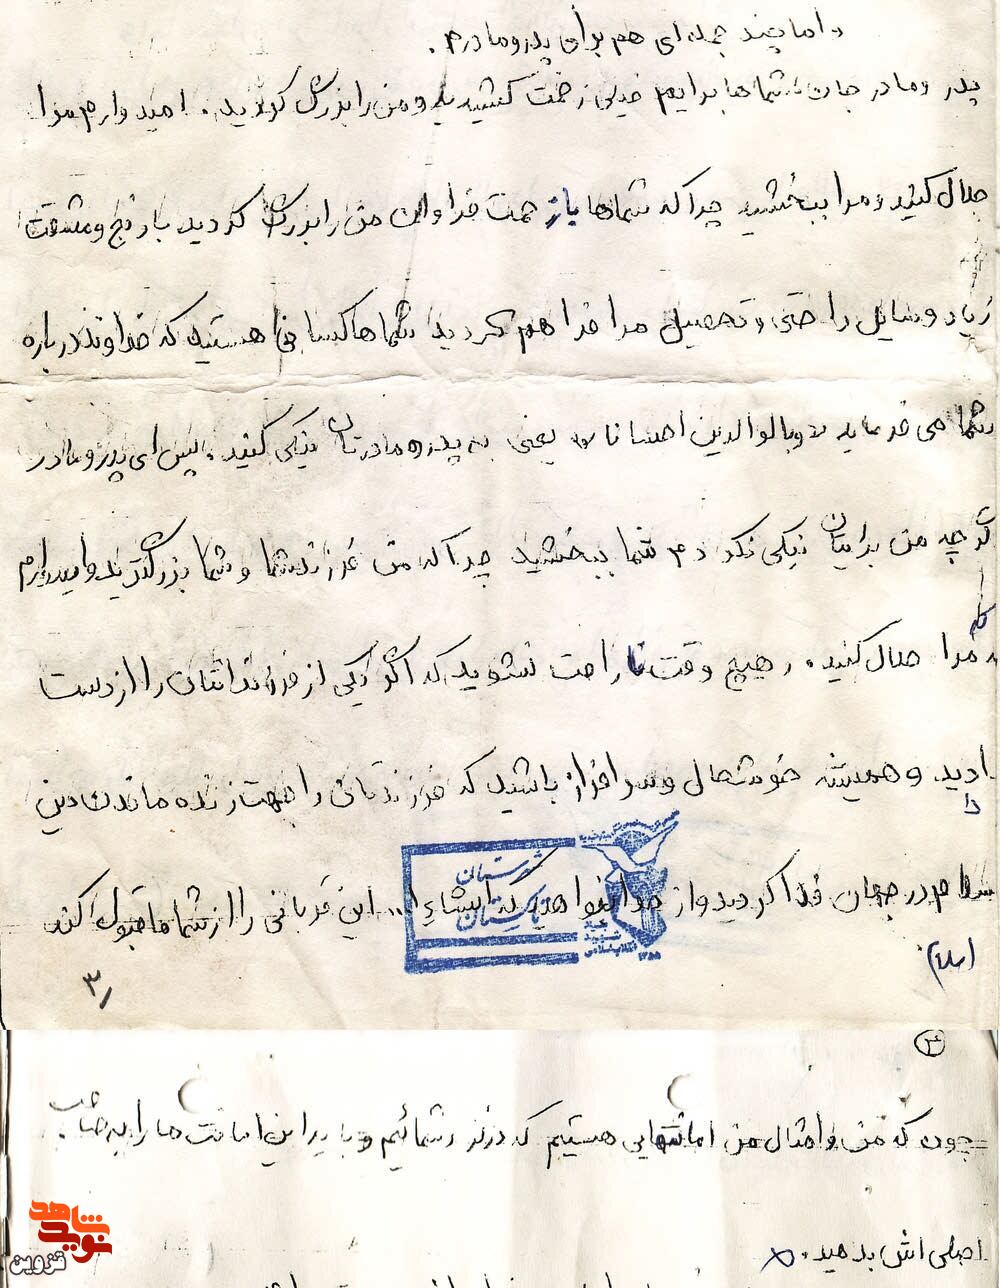 و اما چند جمله ای هم برای پدر و مادرم.
پدر و مادر جان شماها برایم خیلی زحمت کشیدید و من را بزرگ کردید. امیدوارم مرا
حلال کنید و مرا ببخشید چرا که شماها با زحمت فراوان من را بزرگ کردید با رنج و مشقت
زیاد وسایل راحتی و تحصیل مرا فراهم کردید شماها کسانی هستید که خداوند درباره
شما می فرماید و بالوالدین احسانا یعنی به پدر و مادرتان نیکی کنید. پس ای پدر و مادر
گرچه من برایتان نیکی نکردم شما ببخشید چرا که من فرزند شما و شما بزرگترید و امیدوارم
که مرا حلال کنید. هیچ وقت ناراحت نشوید که اگر یکی از فرزندانتان را از دست
دادید و همیشه خوشحال و سرافراز باشید که فرزندتانی را جهت زنده ماندن دین
اسلام در جهان فدا کردید و از خدا بخواهید که انشاءا... این قربانی را از شما قبول کند
(اسلام)
۳
شهرستان
تاکستان
بنیاد
شهید
انقلاب اسلامی
۴
چون که من و امثال من امانتهایی هستیم که در نزد شمائیم و باید این امانت ها را به صاحب
اصلی اش بدهید.
شاهد
نوید
قزوین